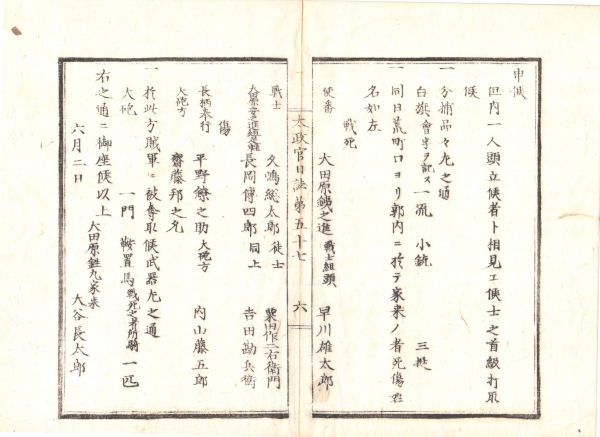 申候
但内一人頭立候者ト相見エ候士之首級打取
候
一 分捕品々左之通
白旗會字ヲ記ス 一流 小銃 三挺
一 同日荒町口ヨリ郭内ニ於テ家来ノ者死傷姓
名如左
戦死
使番 大田原鐵之進 戦士組頭 早川雄太郎
太政官日誌第五十七 六
戦士 久嶋総太郎 徒士 粟田作二右衛門
大原 長岡傳四郎 同上 吉田勘兵衛
傷
長柄奉行 平野鐐之助 大砲方 内山藤五郎
大砲方 齋藤邦之允
一 於此方賊軍ニ被奪取候武器左之通
大砲 一門 鞍置馬戦死之者所騎 一匹
右之通ニ御座候以上
六月二日 大田原鉎丸家来 大谷長太郎